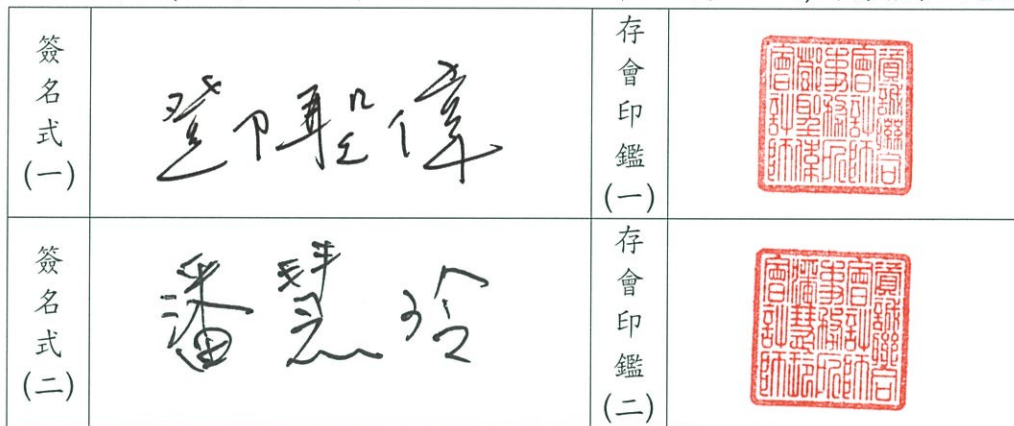 簽名式(一)
鄧聖偉
存會印鑑(一)
資誠聯合
會計師
事務所
鄧聖偉
會計師
簽名式(二)
潘慧玲
存會印鑑(二)
資誠聯合
會計師
事務所
潘慧玲
會計師